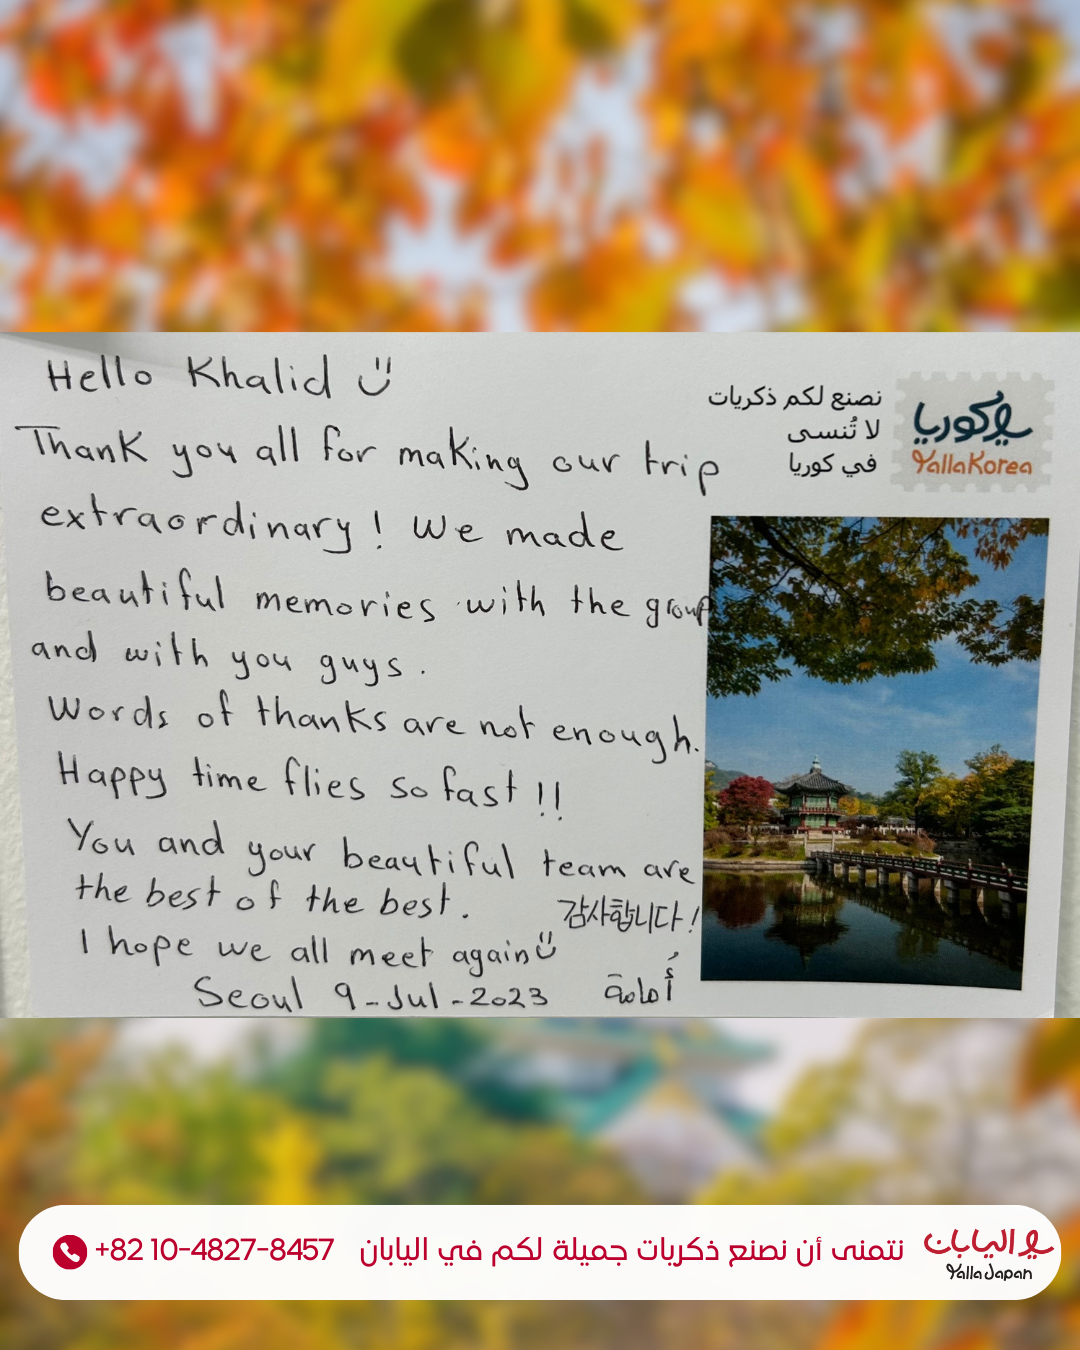 Hello Khalid
Thank you all for making our trip
extraordinary! We made
beautiful memories with the group
and with you guys.
Words of thanks are not enough.
Happy time flies so fast!!
You and your beautiful team are
the best of the best.
감사합니다!
I hope we all meet again
Seoul 9-Jul-2023
أُمامة
نصنع لكم ذكريات
لا تُنسى
في كوريا
يلا كوريا
YallaKorea
+82 10-4827-8457
نتمنى أن نصنع ذكريات جميلة لكم في اليابان
يلا اليابان
YallaJapan